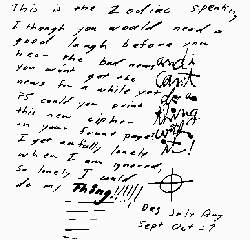 This is the Zodiac speaking
I though you would need a
good laugh before you
hear the bad news
you won't get the
news for a while yet
PS could you print
this new cipher
on your front page?
I get awfully lonely
when I am ignored,
So lonely I could
do my Thing!!!!!!
and i
can't
do a
thing
with
it!
Des July Aug
Sept Oct = 7